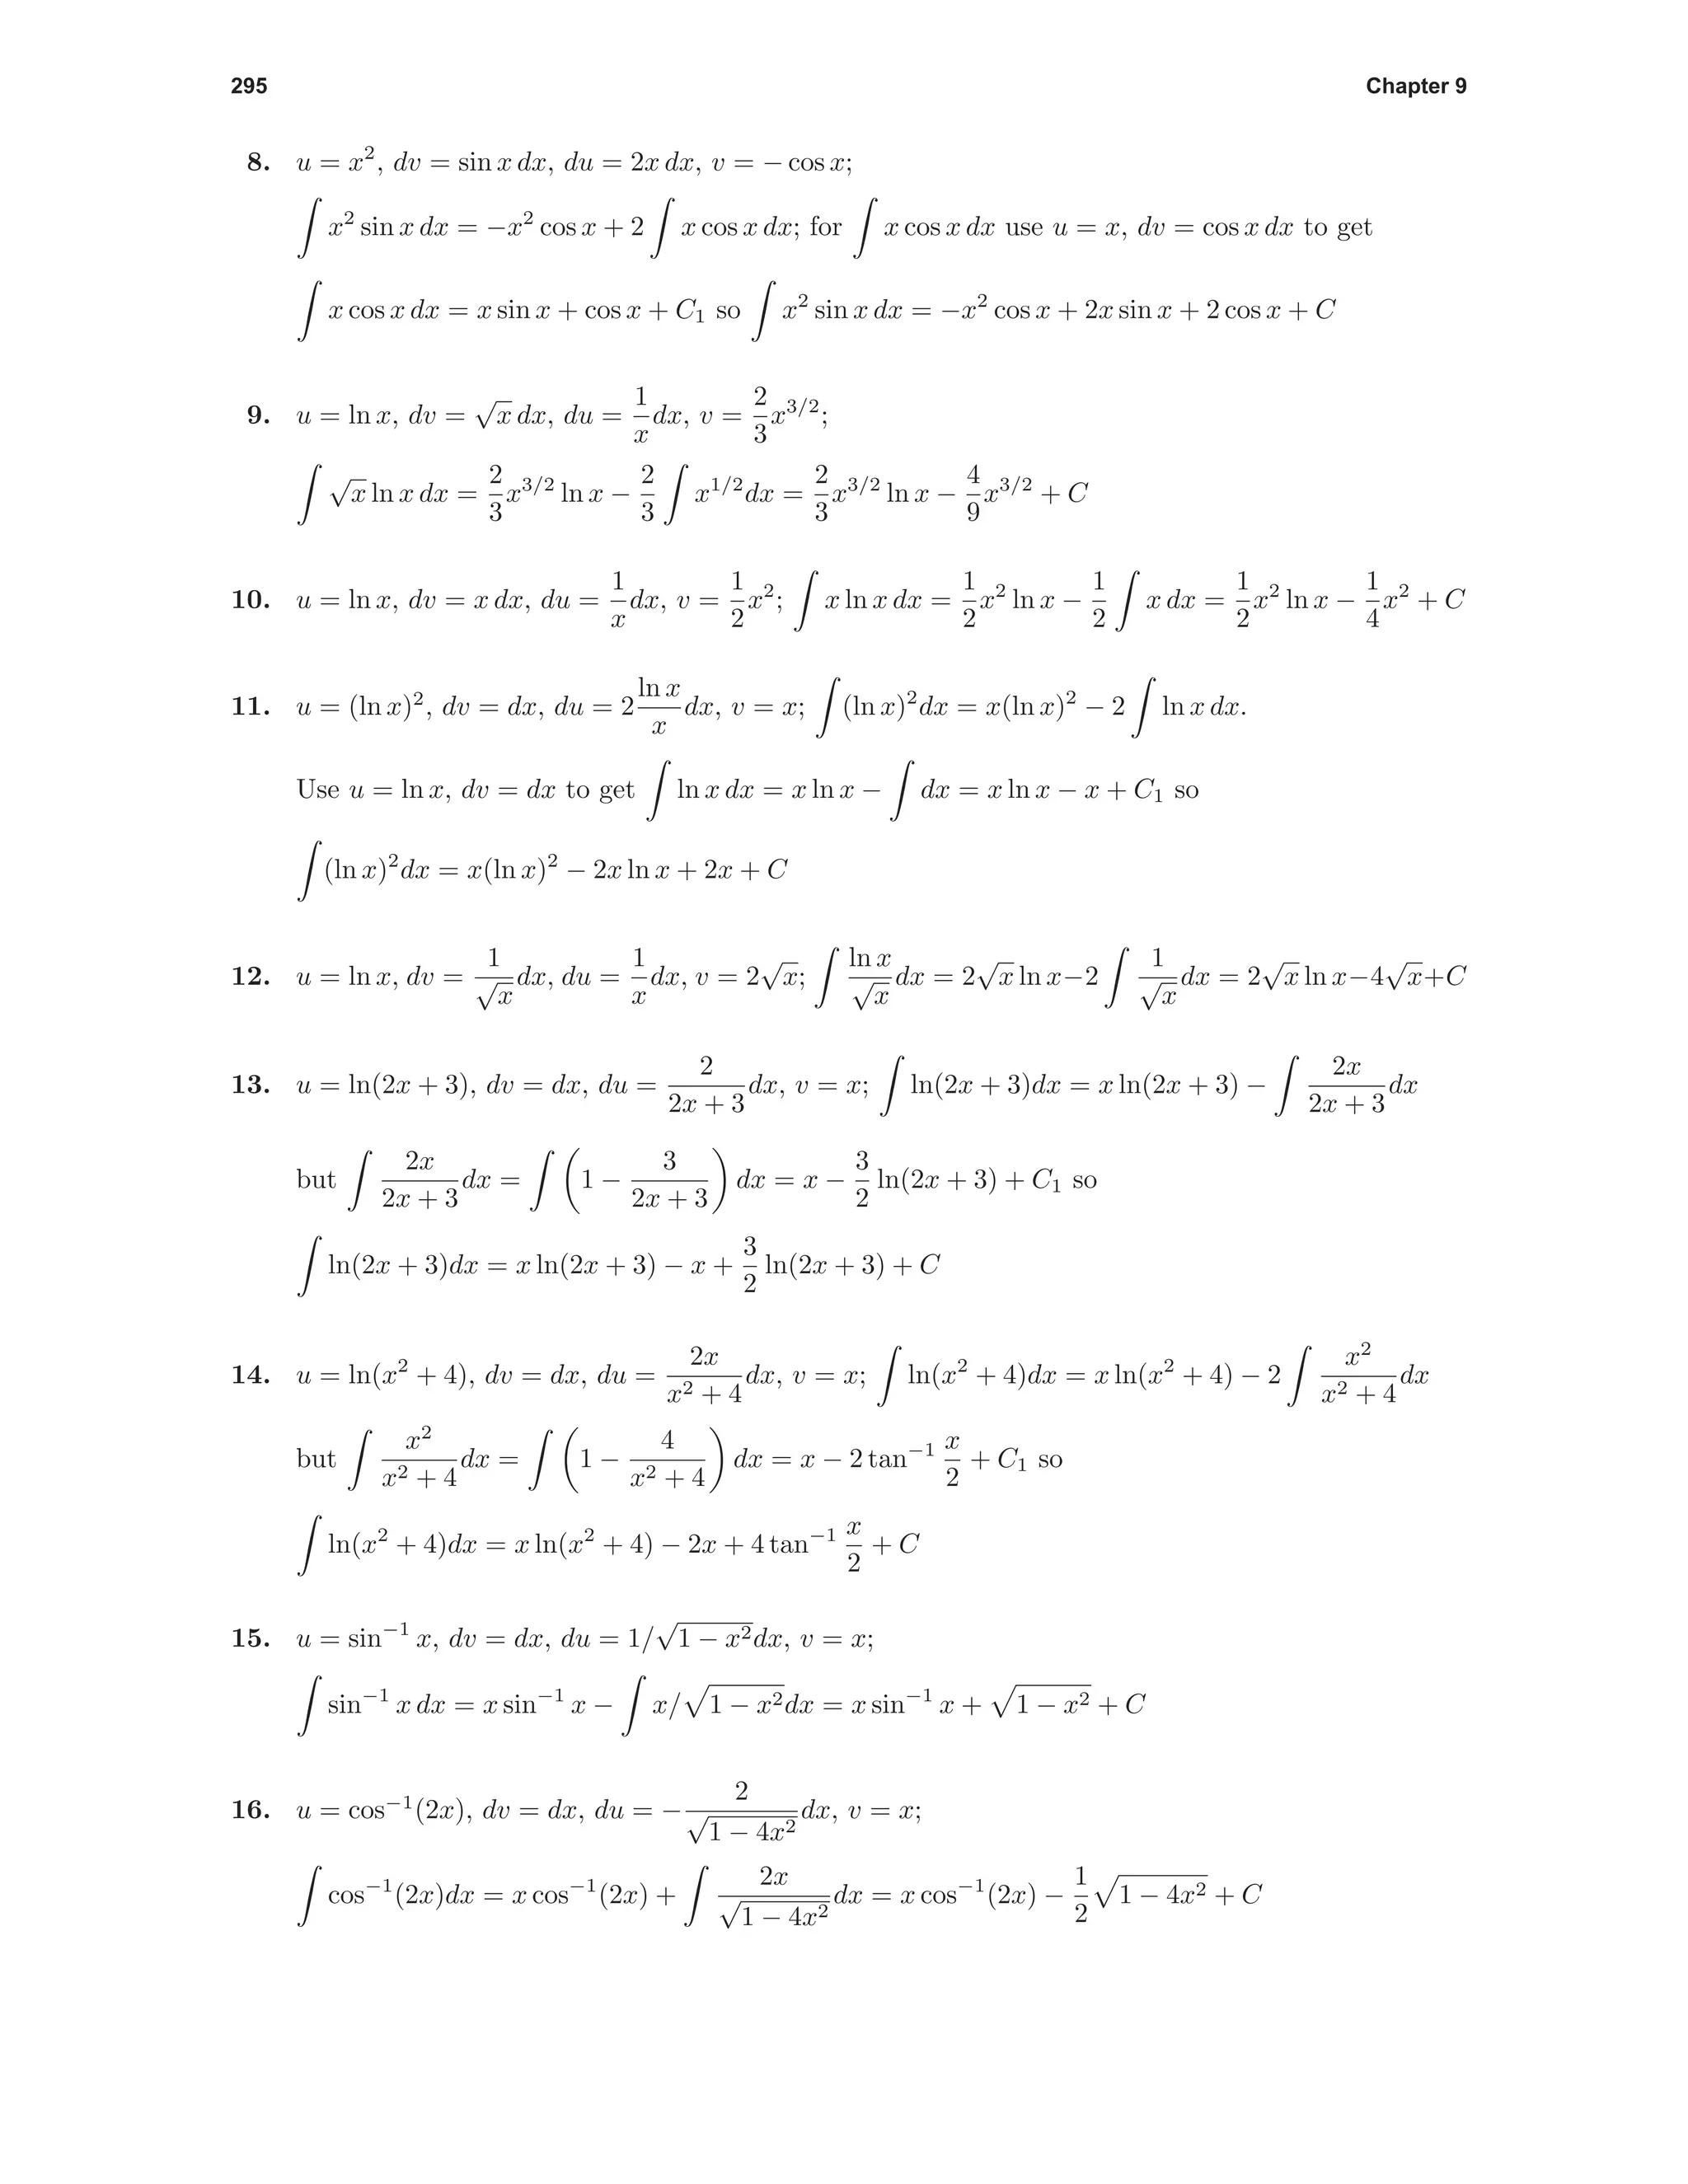 295 Chapter 9
8. u = x², dv = sin x dx, du = 2x dx, v = − cos x;
∫ x² sin x dx = −x² cos x + 2 ∫ x cos x dx; for ∫ x cos x dx use u = x, dv = cos x dx to get
∫ x cos x dx = x sin x + cos x + C₁ so ∫ x² sin x dx = −x² cos x + 2x sin x + 2 cos x + C
9. u = ln x, dv = √x dx, du = 1/x dx, v = 2/3 x^{3/2};
∫ √x ln x dx = 2/3 x^{3/2} ln x − 2/3 ∫ x^{1/2}dx = 2/3 x^{3/2} ln x − 4/9 x^{3/2} + C
10. u = ln x, dv = x dx, du = 1/x dx, v = 1/2 x²; ∫ x ln x dx = 1/2 x² ln x − 1/2 ∫ x dx = 1/2 x² ln x − 1/4 x² + C
11. u = (ln x)², dv = dx, du = 2 (ln x)/x dx, v = x; ∫ (ln x)²dx = x(ln x)² − 2 ∫ ln x dx.
Use u = ln x, dv = dx to get ∫ ln x dx = x ln x − ∫ dx = x ln x − x + C₁ so
∫ (ln x)²dx = x(ln x)² − 2x ln x + 2x + C
12. u = ln x, dv = 1/√x dx, du = 1/x dx, v = 2√x; ∫ (ln x)/√x dx = 2√x ln x−2 ∫ 1/√x dx = 2√x ln x−4√x+C
13. u = ln(2x + 3), dv = dx, du = 2/(2x + 3) dx, v = x; ∫ ln(2x + 3)dx = x ln(2x + 3) − ∫ 2x/(2x + 3) dx
but ∫ 2x/(2x + 3) dx = ∫ (1 − 3/(2x + 3)) dx = x − 3/2 ln(2x + 3) + C₁ so
∫ ln(2x + 3)dx = x ln(2x + 3) − x + 3/2 ln(2x + 3) + C
14. u = ln(x² + 4), dv = dx, du = 2x/(x² + 4) dx, v = x; ∫ ln(x² + 4)dx = x ln(x² + 4) − 2 ∫ x²/(x² + 4) dx
but ∫ x²/(x² + 4) dx = ∫ (1 − 4/(x² + 4)) dx = x − 2 tan⁻¹ x/2 + C₁ so
∫ ln(x² + 4)dx = x ln(x² + 4) − 2x + 4 tan⁻¹ x/2 + C
15. u = sin⁻¹ x, dv = dx, du = 1/√(1 − x²)dx, v = x;
∫ sin⁻¹ x dx = x sin⁻¹ x − ∫ x/√(1 − x²)dx = x sin⁻¹ x + √(1 − x²) + C
16. u = cos⁻¹(2x), dv = dx, du = − 2/√(1 − 4x²) dx, v = x;
∫ cos⁻¹(2x)dx = x cos⁻¹(2x) + ∫ 2x/√(1 − 4x²) dx = x cos⁻¹(2x) − 1/2 √(1 − 4x²) + C